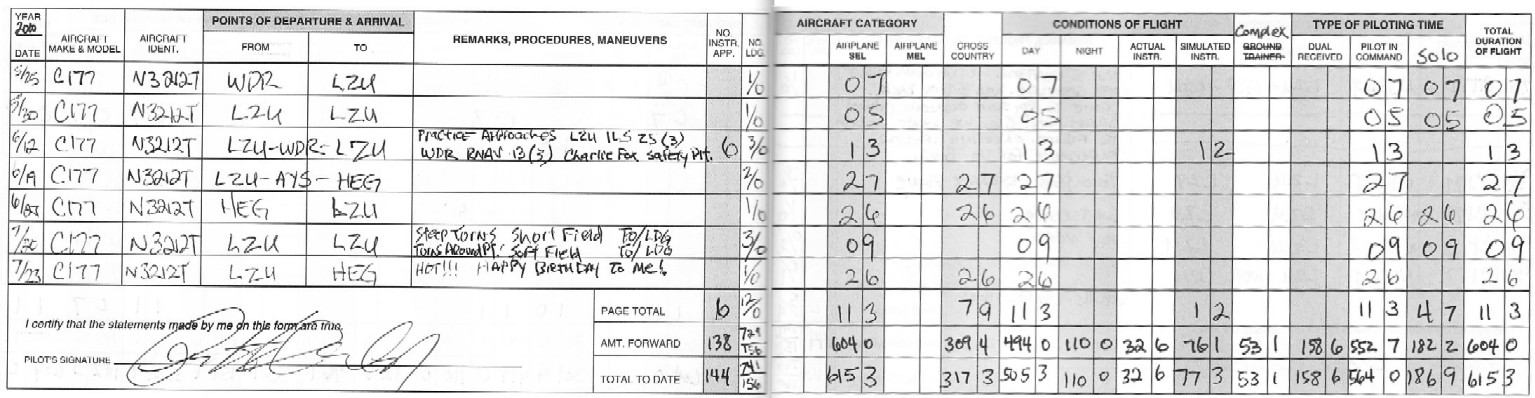 YEAR 2010 POINTS OF DEPARTURE & ARRIVAL AIRCRAFT CATEGORY CONDITIONS OF FLIGHT Complex TYPE OF PILOTING TIME
DATE AIRCRAFT MAKE & MODEL AIRCRAFT IDENT. FROM TO REMARKS, PROCEDURES, MANEUVERS NO. INSTR. APP. NO. LDG. AIRPLANE SEL AIRPLANE MEL CROSS COUNTRY DAY NIGHT ACTUAL INSTR. SIMULATED INSTR. GROUND TRAINER DUAL RECEIVED PILOT IN COMMAND SOLO TOTAL DURATION OF FLIGHT
5/25 C177 N3212T WDR LZU 1/0 0 7 0 7 0 7 0 7 0 7
5/30 C177 N3212T LZU LZU 1/0 0 5 0 5 0 5 0 5 0 5
6/12 C177 N3212T LZU-WDR-LZU Practice Approaches LZU ILS 25 (3)
WDR RNAV 13 (3) Charlie Fox Safety Plt. 6 3/0 1 3 1 3 1 2 1 3 1 3
6/19 C177 N3212T LZU-AYS-HEG 2/0 2 7 2 7 2 7 2 7 2 7
C177 N3212T HEG LZU 1/0 2 6 2 6 2 6 2 6 2 6 2 6
7/20 C177 N3212T LZU LZU Steep Turns Short Field TO/LDG
Turns Around Pt. Soft Field TO/LDG 3/0 0 9 0 9 0 9 0 9 0 9
7/23 C177 N3212T LZU HEG HOT!!! HAPPY BIRTHDAY TO ME! 1/0 2 6 2 6 2 6 2 6 2 6
PAGE TOTAL 6 12/0 11 3 7 9 11 3 1 2 11 3 4 7 11 3
I certify that the statements made by me on this form are true.
AMT. FORWARD 138 729/156 604 0 309 4 494 0 110 0 32 6 76 1 53 1 158 6 552 7 182 2 604 0
PILOT'S SIGNATURE
TOTAL TO DATE 144 741/156 615 3 317 3 505 3 110 0 32 6 77 3 53 1 158 6 564 0 186 9 615 3